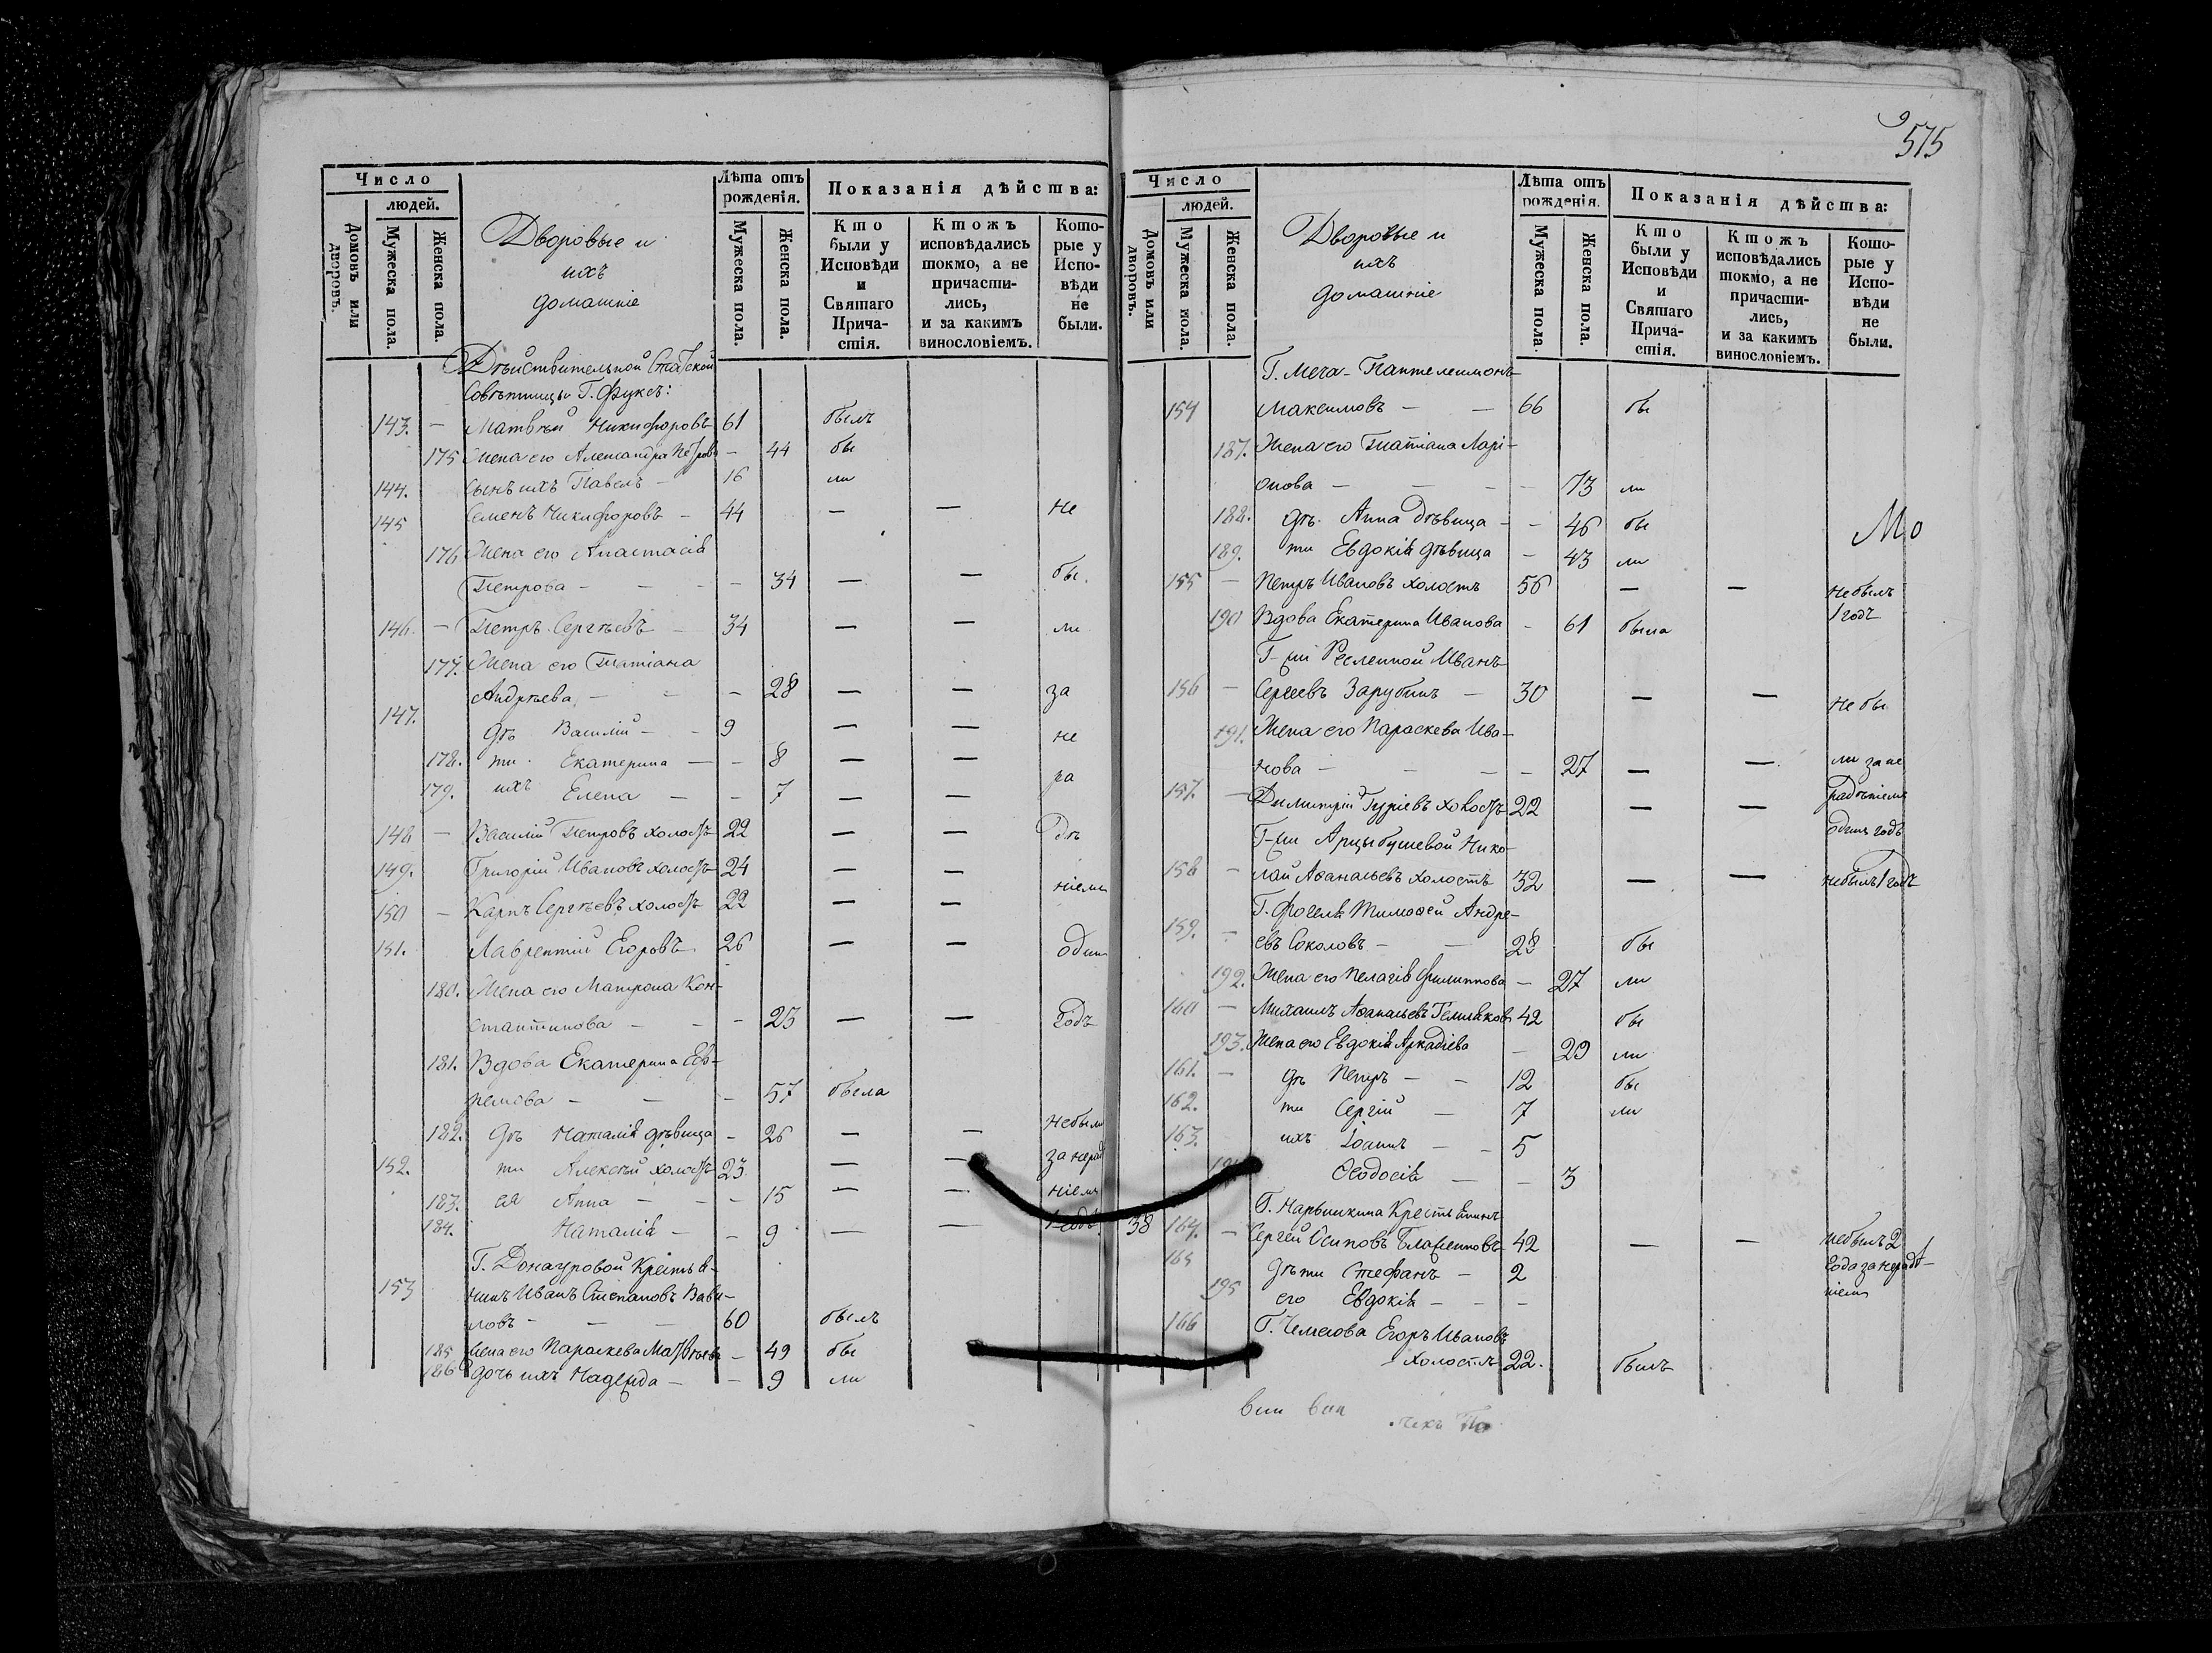 575
Число
людей.
Домовъ или дворовъ.
Мужеска пола.
Женска пола.
Дворовые и
ихъ
домашніе
Лѣта отъ рожденія.
Мужеска пола.
Женска пола.
Показанія дѣйства:
Кто были у Исповѣди и Святаго Прича-стія.
Ктожъ исповѣдались токмо, а не причасти-лись, и за какимъ винословіемъ.
Кото-рые у Испо-вѣди не были.
Дѣйствительной Статской
Совѣтницы Г. Фуксъ:
143. — Матвѣй Никифоровъ 61 былъ
175 Жена его Александра Петрова — 44 бы
144. сынъ ихъ Павелъ — 16 ли
145 Семенъ Никифоровъ — 44 — — Не
176 Жена его Анастасія
Петрова — — — 34 — — бы.
146. — Петръ Сергѣевъ — 34 — — ли
177. Жена его Татіана
Андрѣева — — — 28 — — за
147. дѣ Василій — — 9 — — не
178. ти Екатерина — — 8 — — ра
179. ихъ Елена — — 7 — —
148 — Василій Петровъ холостъ 22 — — дѣ
149. Григорій Ивановъ холостъ 24 — — ніемъ
150 — Карпъ Сергѣевъ холостъ 22 — —
151. Лаврентій Егоровъ 26 — — одинъ
180. Жена его Матрона Кон-
стантинова — — — 25 — — годъ
181. Вдова Екатерина Еф-
ремова — — — 57 была
182. дѣ Наталія дѣвица — 26 — — Небыли
152. ти Алексѣй холостъ 23 — — за нерад
183. ея Анна — — — 15 — — ніемъ
184. Наталія — — 9 — — 1 годъ.
Г. Донауровой Крестья-
153 нинъ Иванъ Степановъ Вави-
ловъ — — — 60 былъ
185 Жена его Параскева Матвѣева — 49 бы
186 дочь ихъ Надежда — — 9 ли
Число
людей.
Домовъ или дворовъ.
Мужеска пола.
Женска пола.
Дворовые и
ихъ
домашніе
Лѣта отъ рожденія.
Мужеска пола.
Женска пола.
Показанія дѣйства:
Кто были у Исповѣди и Святаго Прича-стія.
Ктожъ исповѣдались токмо, а не причасти-лись, и за какимъ винословіемъ.
Кото-рые у Испо-вѣди не были.
Г. Меча — Пантелеимонъ
154 Максимовъ — — 66 бы
187. Жена его Татіана Ларі-
онова — — — — 73 ли
188. дѣ Анна дѣвица — — 46 бы
Мо
189. ти Евдокія дѣвица — 43 ли
155 — Петръ Ивановъ холостъ 56 — — Небылъ
1 годъ
190 Вдова Екатерина Иванова — 61 была
Г-жи Иванъ
156 — Сергеевъ Зарубинъ — 30 — — Не бы
191. Жена его Параскева Ива-
нова — — — — 27 — — ли за не
157. — Димитрій Гуріевъ холостъ 22 — — радѣніемъ
одинъ годъ
Г-жи Арцыбушевой Нико-
158 — лай Аѳанасьевъ холостъ 32 — — небылъ 1 годъ
Г. Фогеля Тимоѳей Андре-
159. — евъ Соколовъ — — 28 бы
192. Жена его Пелагія Филиппова — 27 ли
160 — Михаилъ Аѳанасьевъ 42 бы
193. Жена его Евдокія Аркадіева — 29 ли
161. — дѣ Петръ — — 12 бы
162. ти Сергій — 7 ли
163. ихъ Іоаннъ — — 5
Ѳеодосія — — 3
Г. Нарышкина Крестьянинъ
38 164. — Сергей Осиповъ 42 — — небылъ 2
165 дѣти Стефанъ — 2 года за нерадѣ-
195 его Евдокія — — — ніемъ
166 Г. Егоръ Ивановъ
холостъ 22. былъ